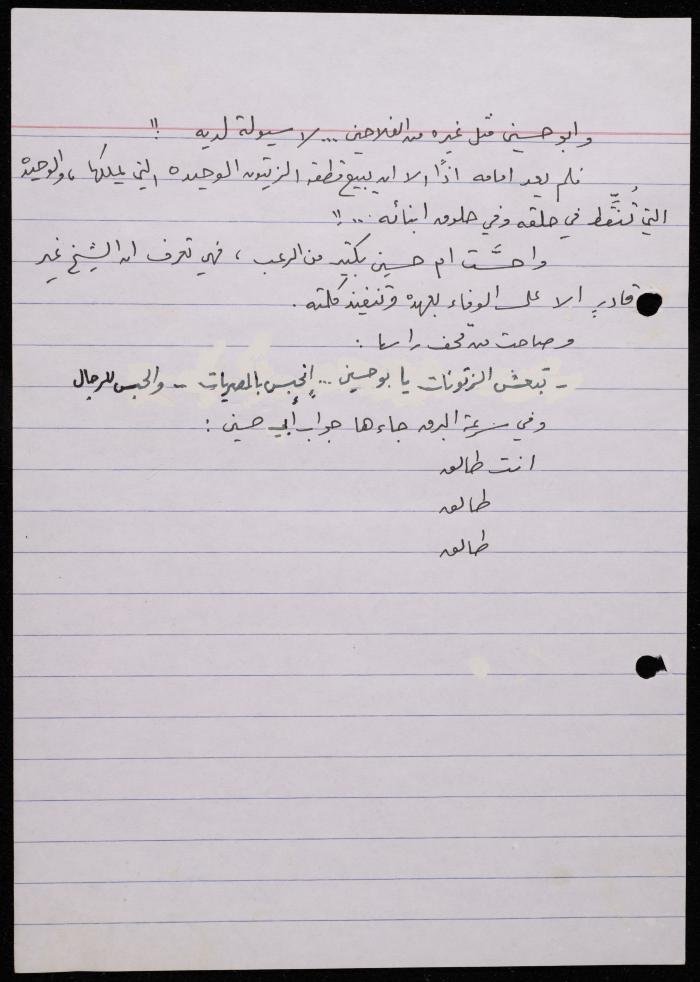 وابو حسين مثل غيره من الفلاحين ... لا سيولة لديه !!
فلم يعد امامه اذًا الا ان يبيع قطعة الزيتون الوحيده التي يملكها ، والوحيدة
التي تُنَقِّط في حلقه وفي حلوق ابنائه ... !!
واحسَّت ام حسين بكثير من الرعب ، فهي تعرف ان الشيخ غير
قادرٍ الا على الوفاء بعهده وتنفيذ كلمته .
وصاحت من قحف راسها :
- تبعش الزتونات يا بو حسين ... إنحبس بالمصريات - والحبس للرجال
وفي سرعة البرق جاءها جواب أبي حسين :
انت طالق
طالق
طالق